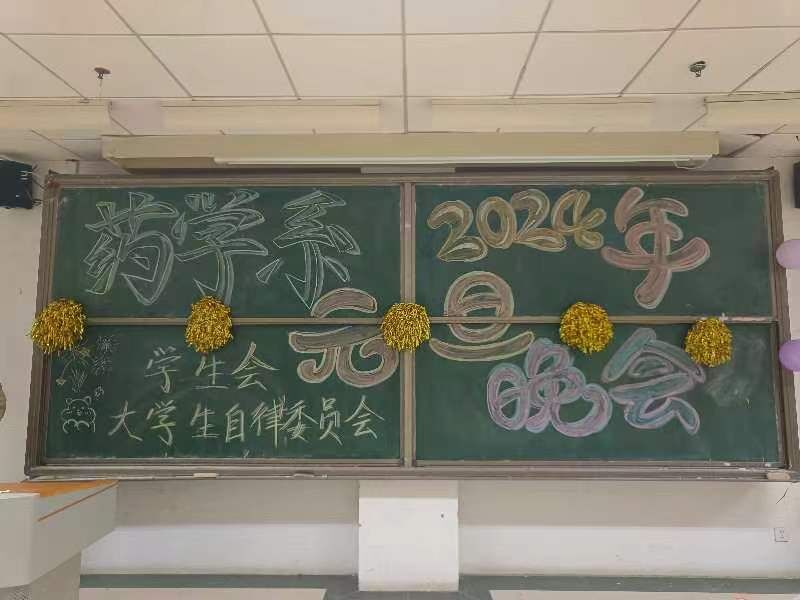 药学系
2024年
元旦
晚会
学生会
大学生自律委员会